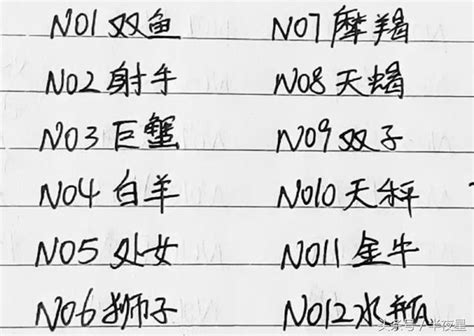 NO1 双鱼
NO2 射手
NO3 巨蟹
NO4 白羊
NO5 处女
NO6 狮子
NO7 摩羯
NO8 天蝎
NO9 双子
NO10 天秤
NO11 金牛
NO12 水瓶
头条号 / 半夜星